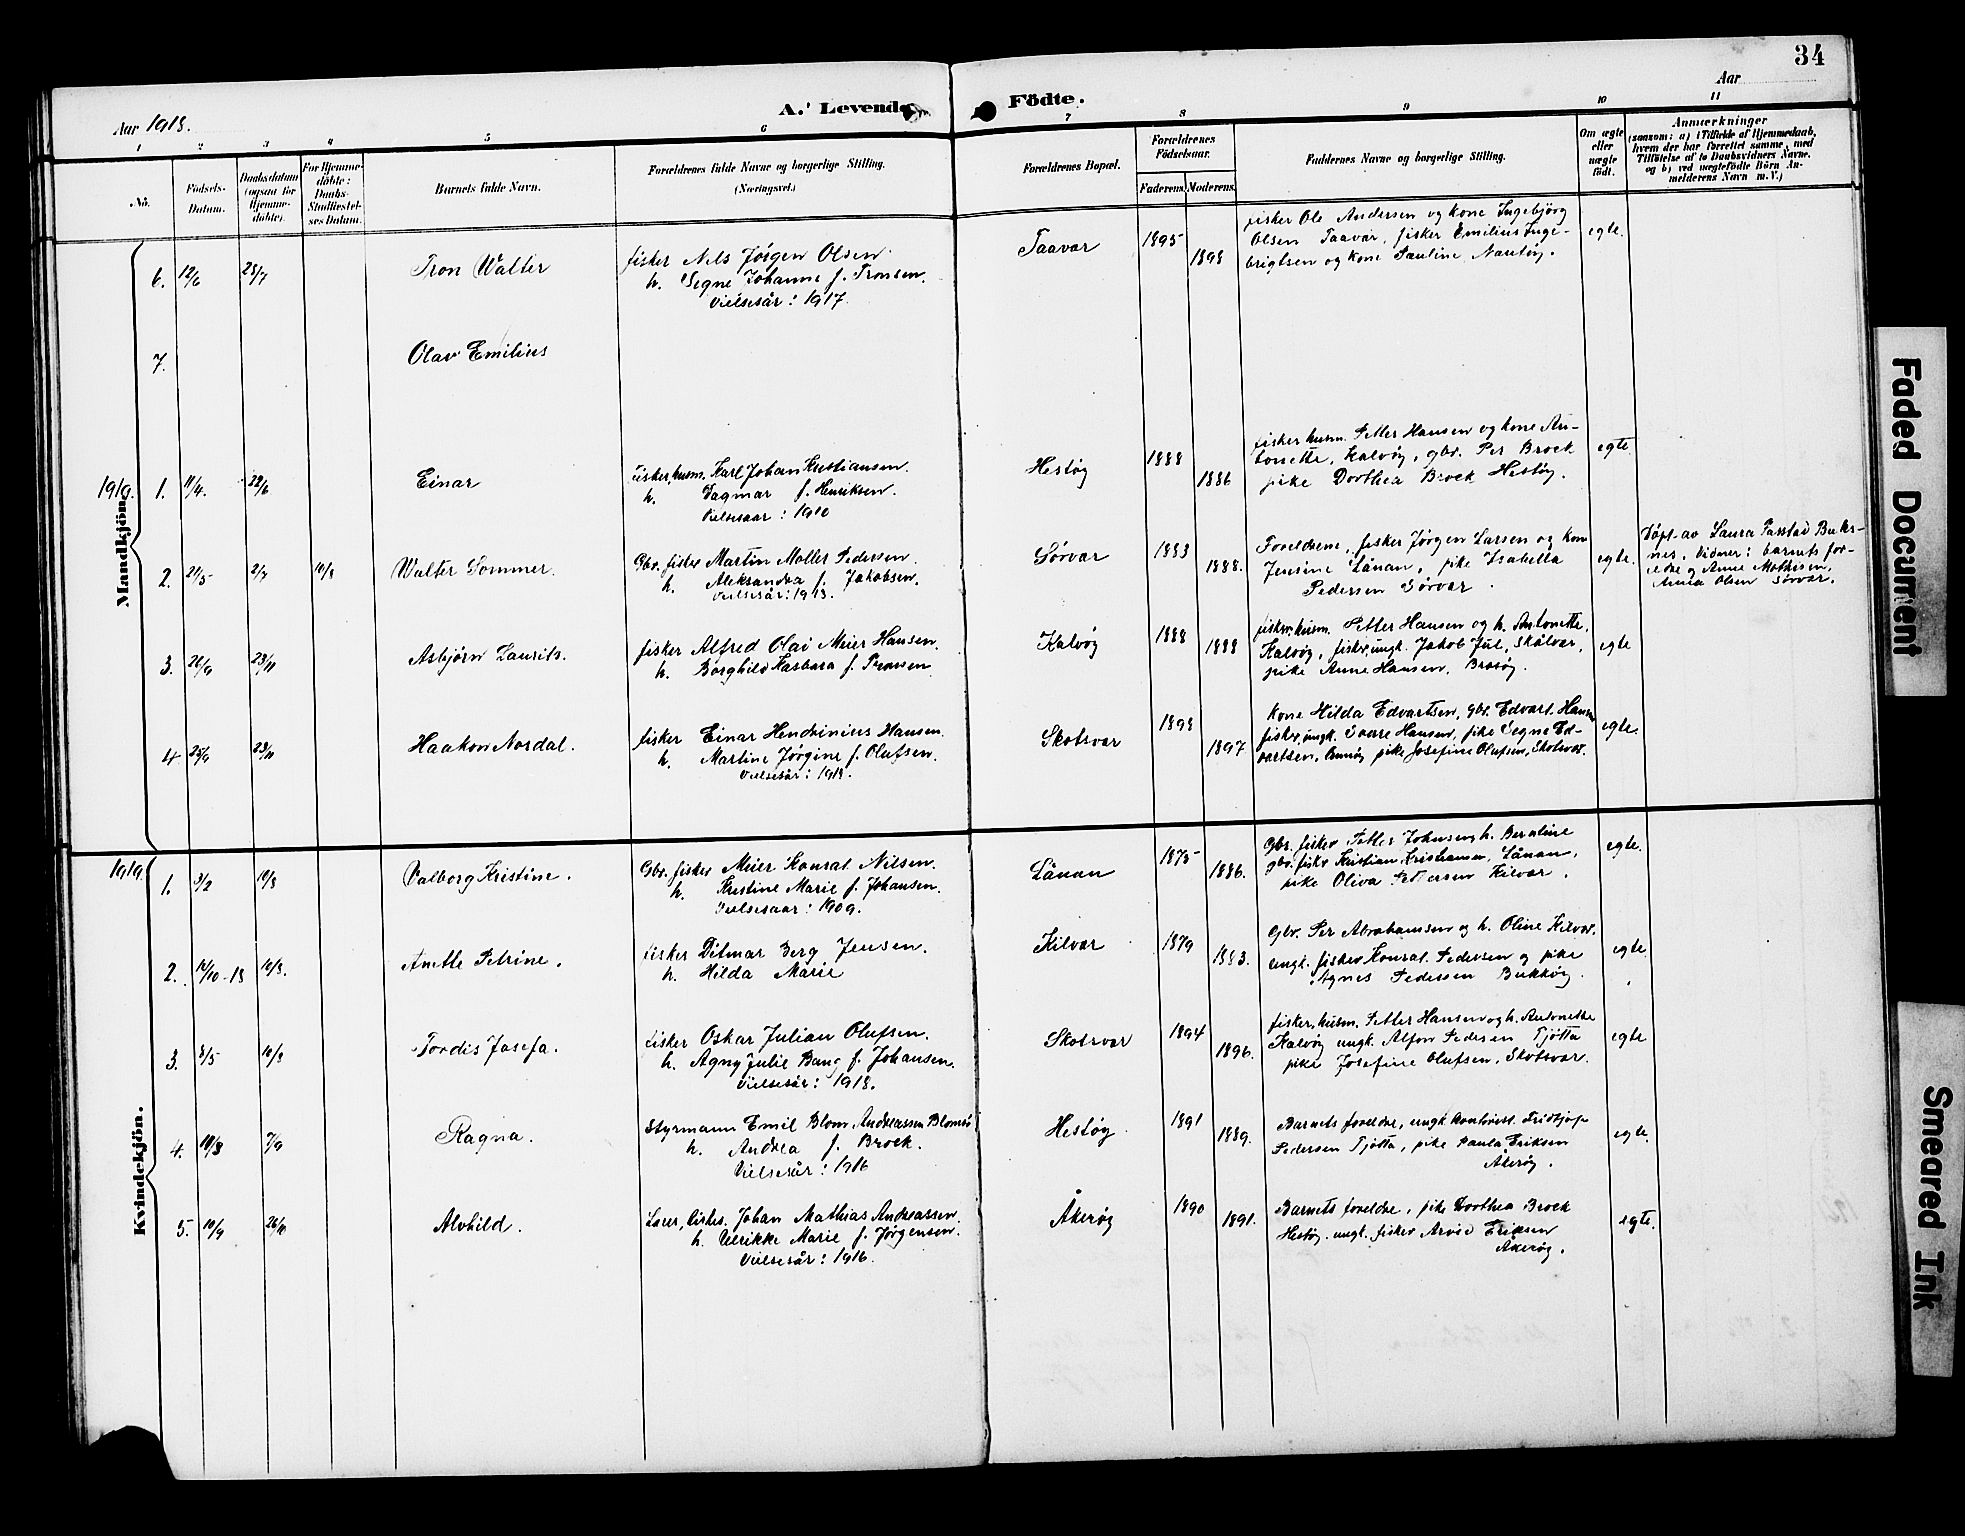 34
Aar 1918.
A. Levende
Födte.
Aar
1 2 3 4 5 6 7 8 9 10 11
No.
Födsels-Datum.
Daabsdatum (ogsaa for Hjemmedöbte).
For Hjemmedöbte: Daabs-Stadfæstelses Datum.
Barnets fulde Navn.
Forældrenes fulde Navne og borgerlige Stilling.
(Næringsvei.)
Forældrenes Bopæl.
Forældrenes Födselsaar.
Faderens. Moderens.
Faddernes Navne og borgerlige Stilling.
Om ægte eller uægte födt.
Anmærkninger
(saasom: a) i Tilfælde af Hjemmedaab, hvem der har forrettet samme, med Tilföielse af to Daabsvidners Navne, og b) ved uægtefödte Börn Anmelderens Navn m. V.)
Mandkjön.
6. 12/6 28/7 Tron Walter
fisker Nils Jørgen Olsen
h. Signe Johanne f. Tronsen.
Vielsesår: 1917.
Taavær 1895 1898
fisker Ole Andersen og kone Ingebjørg
Olsen Taavær, fisker Emilius Inge-
brigtsen og kone Pauline, Nautøy.
egte.
7. Olav Emilius
1919. 1. 11/4. 22/6 Einar
fisker, husm. Karl Johan Kristiansen.
h. Dagmar f. Henriksen.
Vielsesaar: 1910
Hestøy 1888 1886
fisker husm. Petter Hansen og kone An-
tonette, Kalvøy, gbr. Per Brock
pike Dorthea Brock Hestøy.
egte.
2. 21/5 2/7 10/8 Walter Sommer.
Gbr. fisker Martin Møller Pedersen.
h. Aleksandra f. Jakobsen.
Vielsesår: 1913.
Sørvær 1883 1888.
Foreldrene, fisker Jørgen Larsen og kone
Jensine Lånan, pike Isabella
Pedersen Sørvær.
egte.
Døpt av Laura
vidner: barnets for-
eldre og Anne Mathisen,
Anna Olsen Sørvær.
3. 20/9 23/11 Asbjørn Laurits.
fisker Alfred Olai Meier Hansen.
h. Borghild Hasbara f. Tronsen
Kalvøy 1888 1888
fisker, husm. Petter Hansen og h. Antonette,
Kalvøy, fisker, ungk. Jakob Jul, Skålvær,
pike Anne Hansen, Brasøy.
egte
4 25/9 23/11 Haakon Nordal.
fisker Einar Hendrinius Hansen.
h. Martine Jørgine f. Olufsen.
Vielsesår: 1918.
Skotsvær 1898 1897
kone Hilda Edvartsen, gbr. Edvart Hansen
fisker, ungk. Hansen, pike Signe Ed-
vartsen, pike Josefine Olufsen, Skotsvær.
egte.
Kvindekjön.
1919. 1. 3/2 10/8 Valborg Kristine.
Gbr. fisker Meier Konrat Nilsen.
h. Kristine Marie f. Johansen.
Vielsesaar: 1909.
Lånan 1875 1886.
Gbr. fisker Petter Johnsen og h. Berntine
gbr. fisker Kristian Kristiansen, Lånan,
pike Oliva Pettersen Kilvær.
egte.
2. 12/10-18 10/8. Anette Petrine.
fisker Ditmar Berg Jensen.
h. Hilda Marie
Kilvær 1879 1883.
Gbr. Per Abrahamsen og h. Oline Kilvær.
ungk. fisker Konrat Pedersen og pike
Agnes Pedersen Bukkøy.
egte.
3. 8/5 10/8 Tordis Josefa.
fisker Oskar Julian Olufsen.
h. Agny Julie Bang f. Johansen.
Vielsesår: 1918.
Skotsvær 1894 1896.
fisker, husm. Petter Hansen og h. Antonette
Kalvøy ungk. Alfon Pedersen Tjøtta
pike Josefine Olufsen, Skotsvær.
egte
4. 10/8 7/9 Ragna.
Styrmann Emil Blom Andreassen Blomsø
h. Andrea f. Brock.
Vielsesår: 1916
Hestøy. 1891 1889.
Barnets foreldre, ungk. Fridtjof
Pedersen Tjøtta, pike Paula Eriksen
Åkerøy.
egte.
5. 10/9 26/11 Alvhild.
Lærer, kirkes. Johan Mathias Andreassen.
h. Ulrikke Marie f. Jørgensen.
Vielsesår: 1916.
Åkerøy 1890 1891.
Barnets foreldre, pike Dorthea Brock
Hestøy. ungk. fisker Arvid Eriksen
Åkerøy.
egte.
Faded Document
Smeared Ink